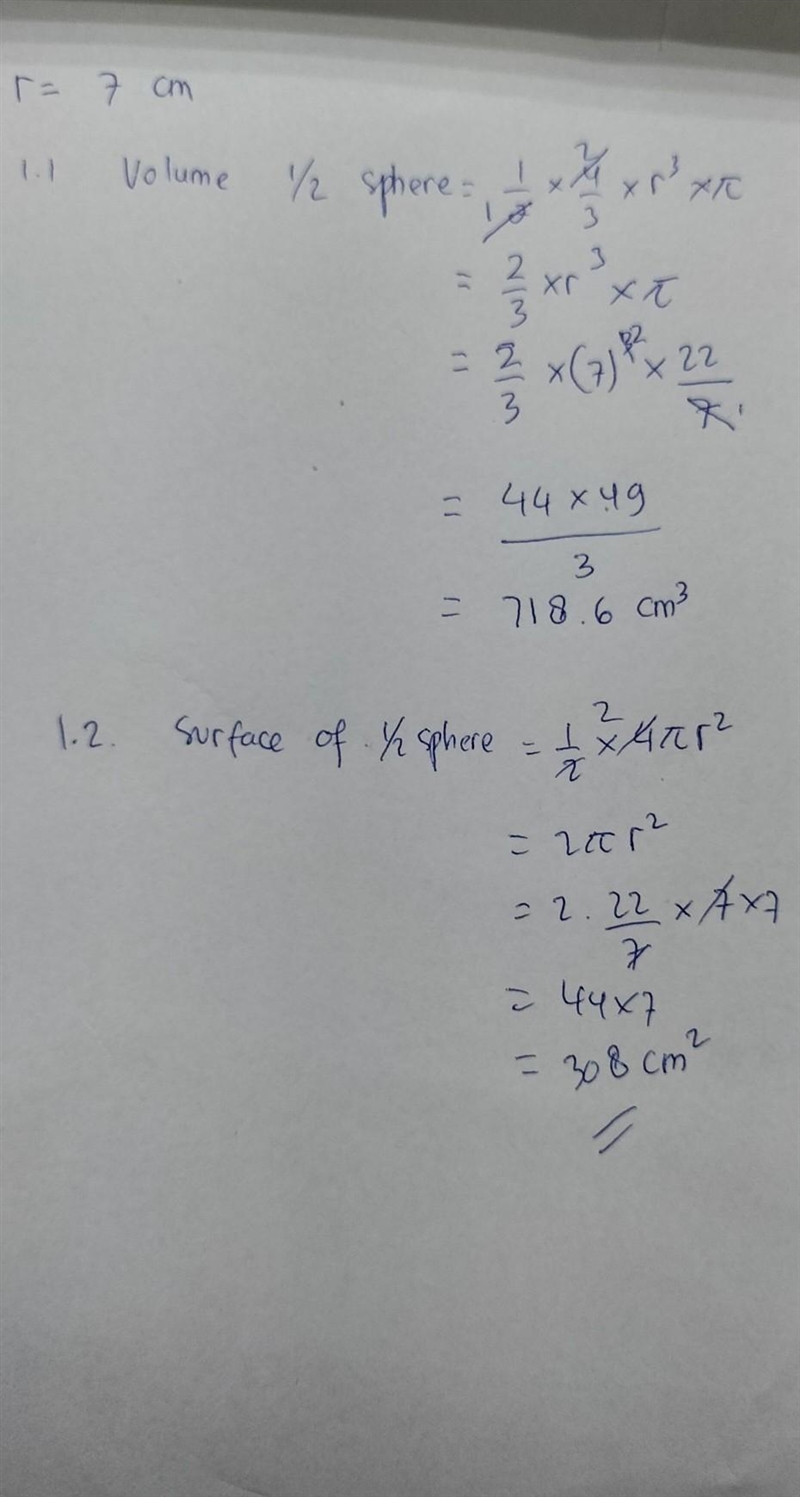 r = 7 cm
1.1 Volume 1/2 sphere = 1/2 × 4/3 × r³ × π
= 2/3 × r³ × π
= 2/3 × (7)² × 22/7
= 44 × 49 / 3
= 718.6 cm³
1.2. Surface of 1/2 sphere = 1/2 × 4πr²
= 2πr²
= 2 . 22/7 × 7 × 7
= 44 × 7
= 308 cm²